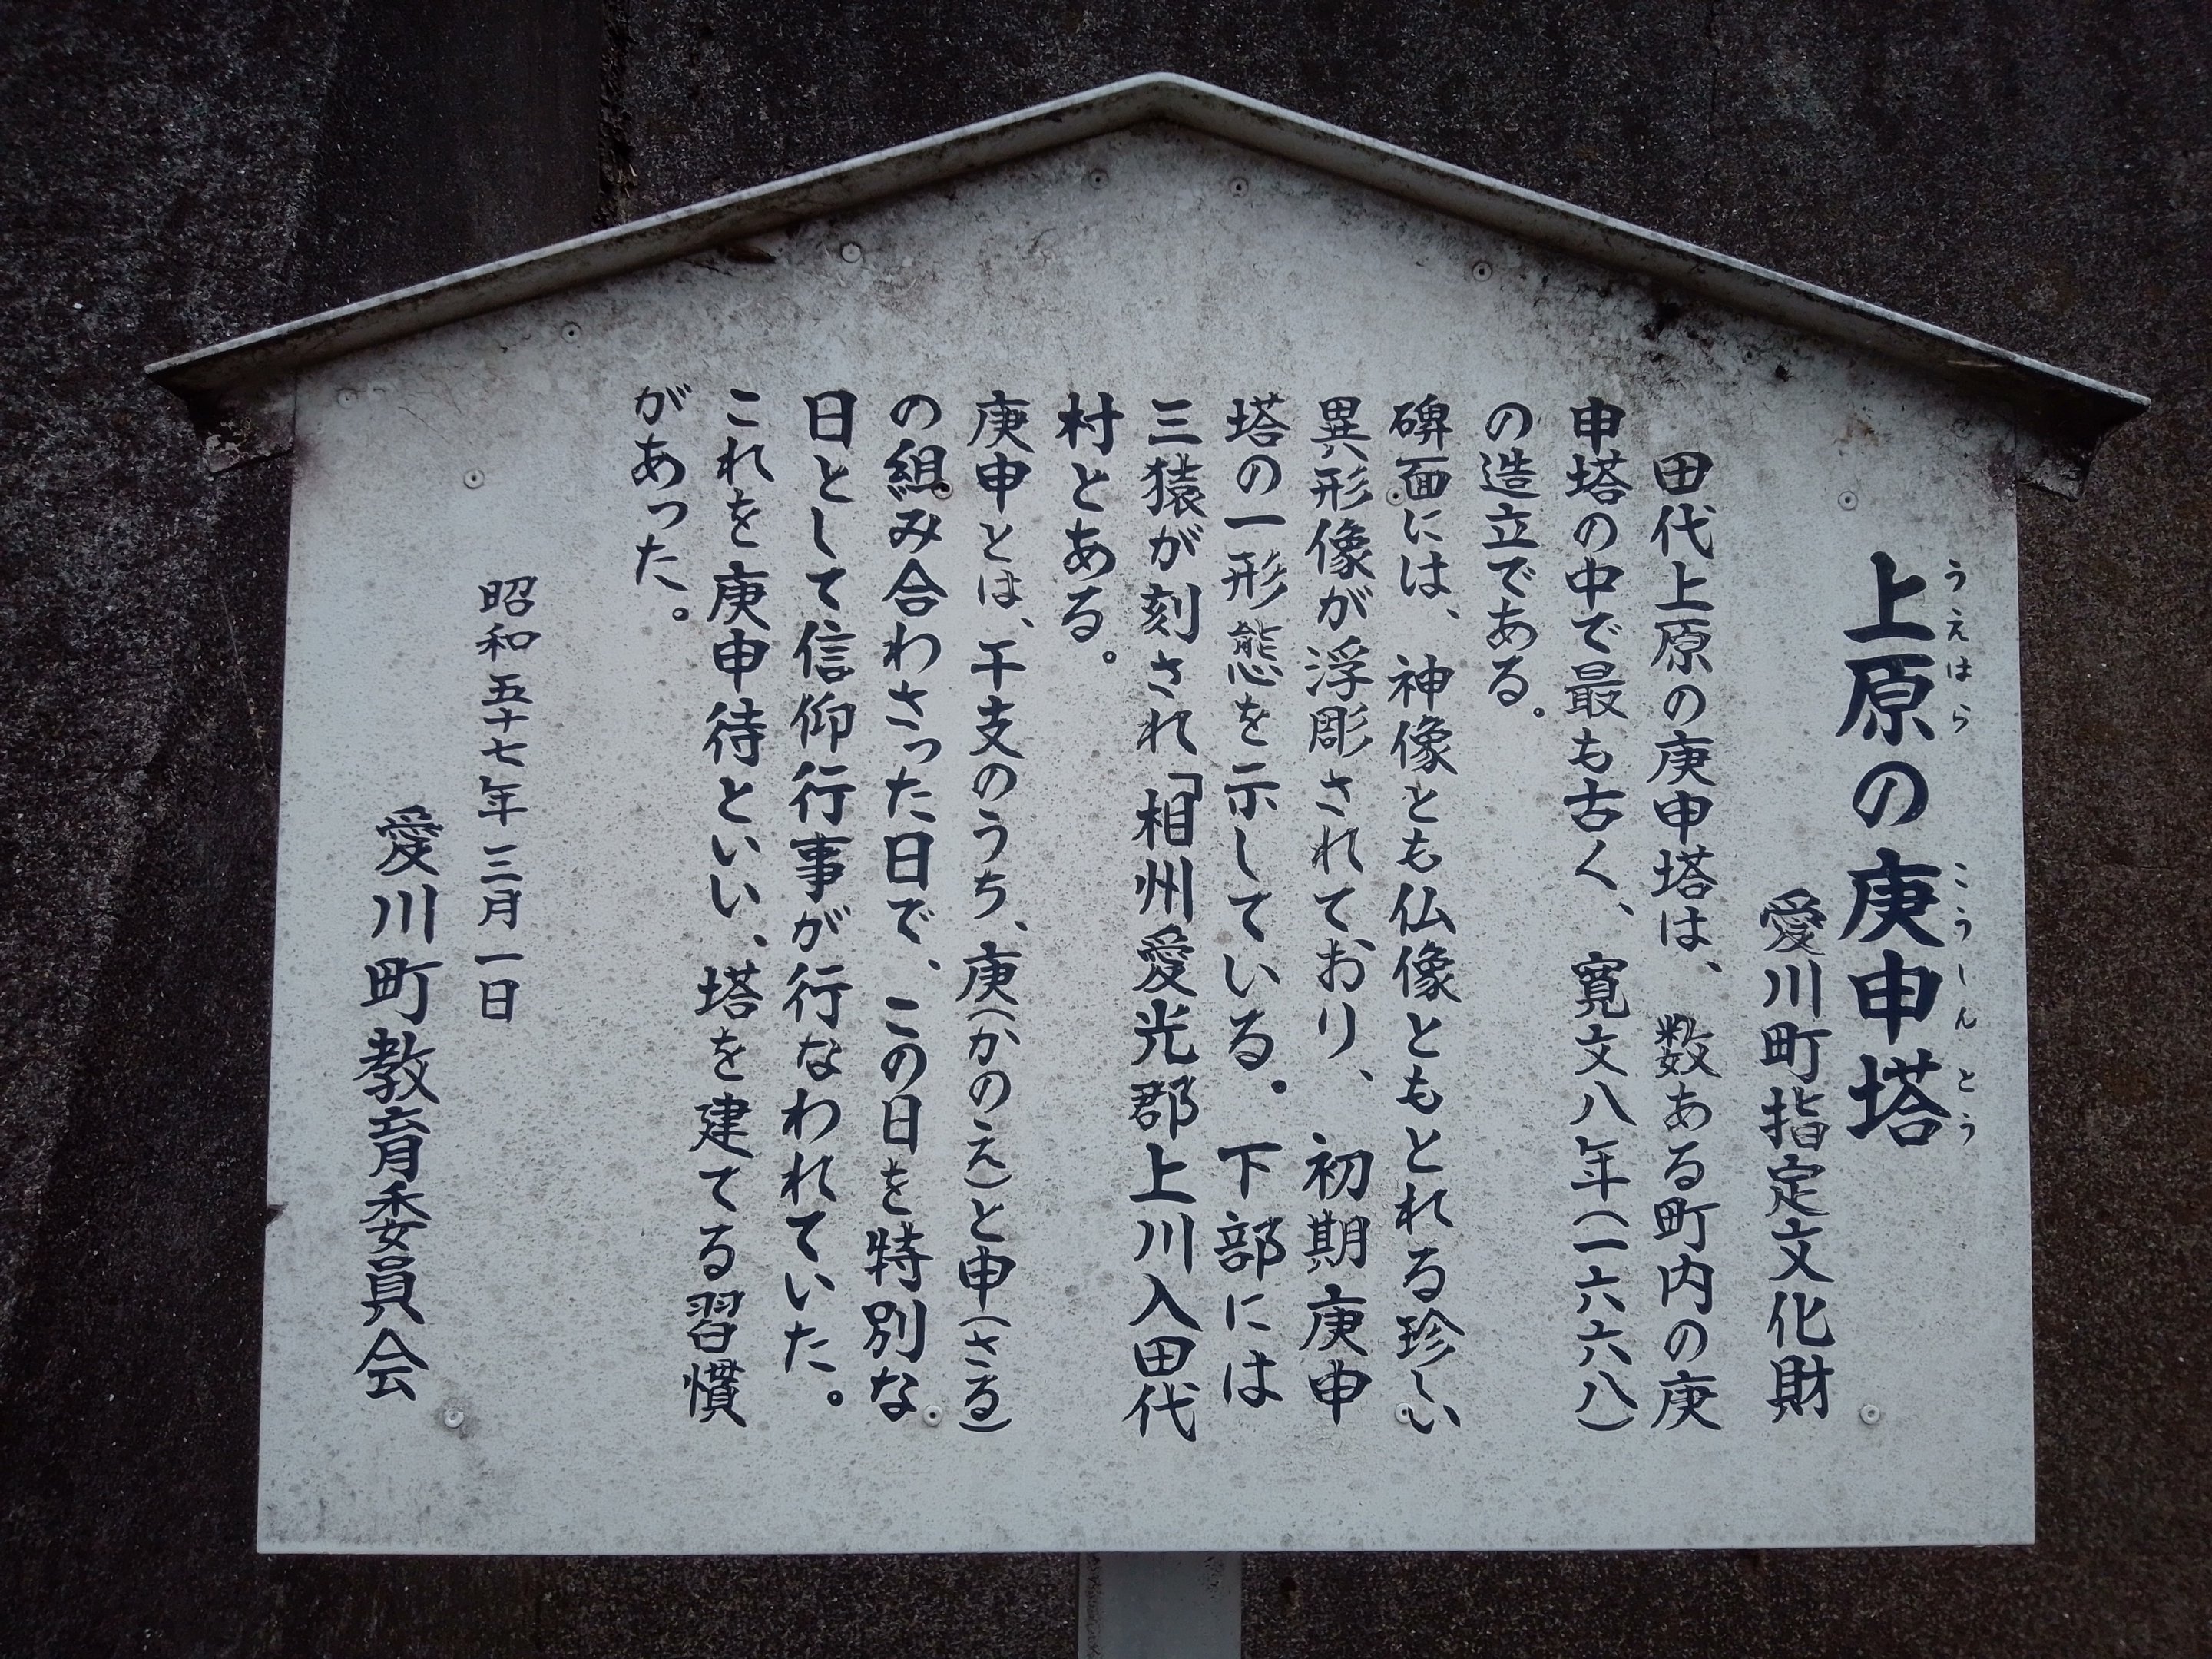 上原の庚申塔
うえはら こうしんとう
愛川町指定文化財
田代上原の庚申塔は、数ある町内の庚
申塔の中で最も古く、寛文八年(一六六八)
の造立である。
碑面には、神像とも仏像ともとれる珍しい
異形像が浮彫されており、初期庚申
塔の一形態を示している。下部には
三猿が刻され「相州愛光郡上川入田代
村とある。
庚申とは、干支のうち、庚(かのえ)と申(さる)
の組み合わさった日で、この日を特別な
日として信仰行事が行なわれていた。
これを庚申待といい、塔を建てる習慣
があった。
昭和五十七年三月一日
愛川町教育委員会